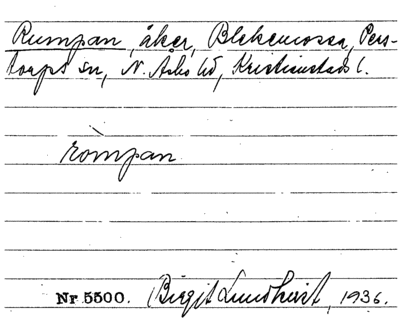 Rumpan, åker, Blekemossa, Pers-
torps sn, N. Åsbo hd, Kristianstads l.
ròmpan
Nr 5500. Birgit Lundkvist, 1936.